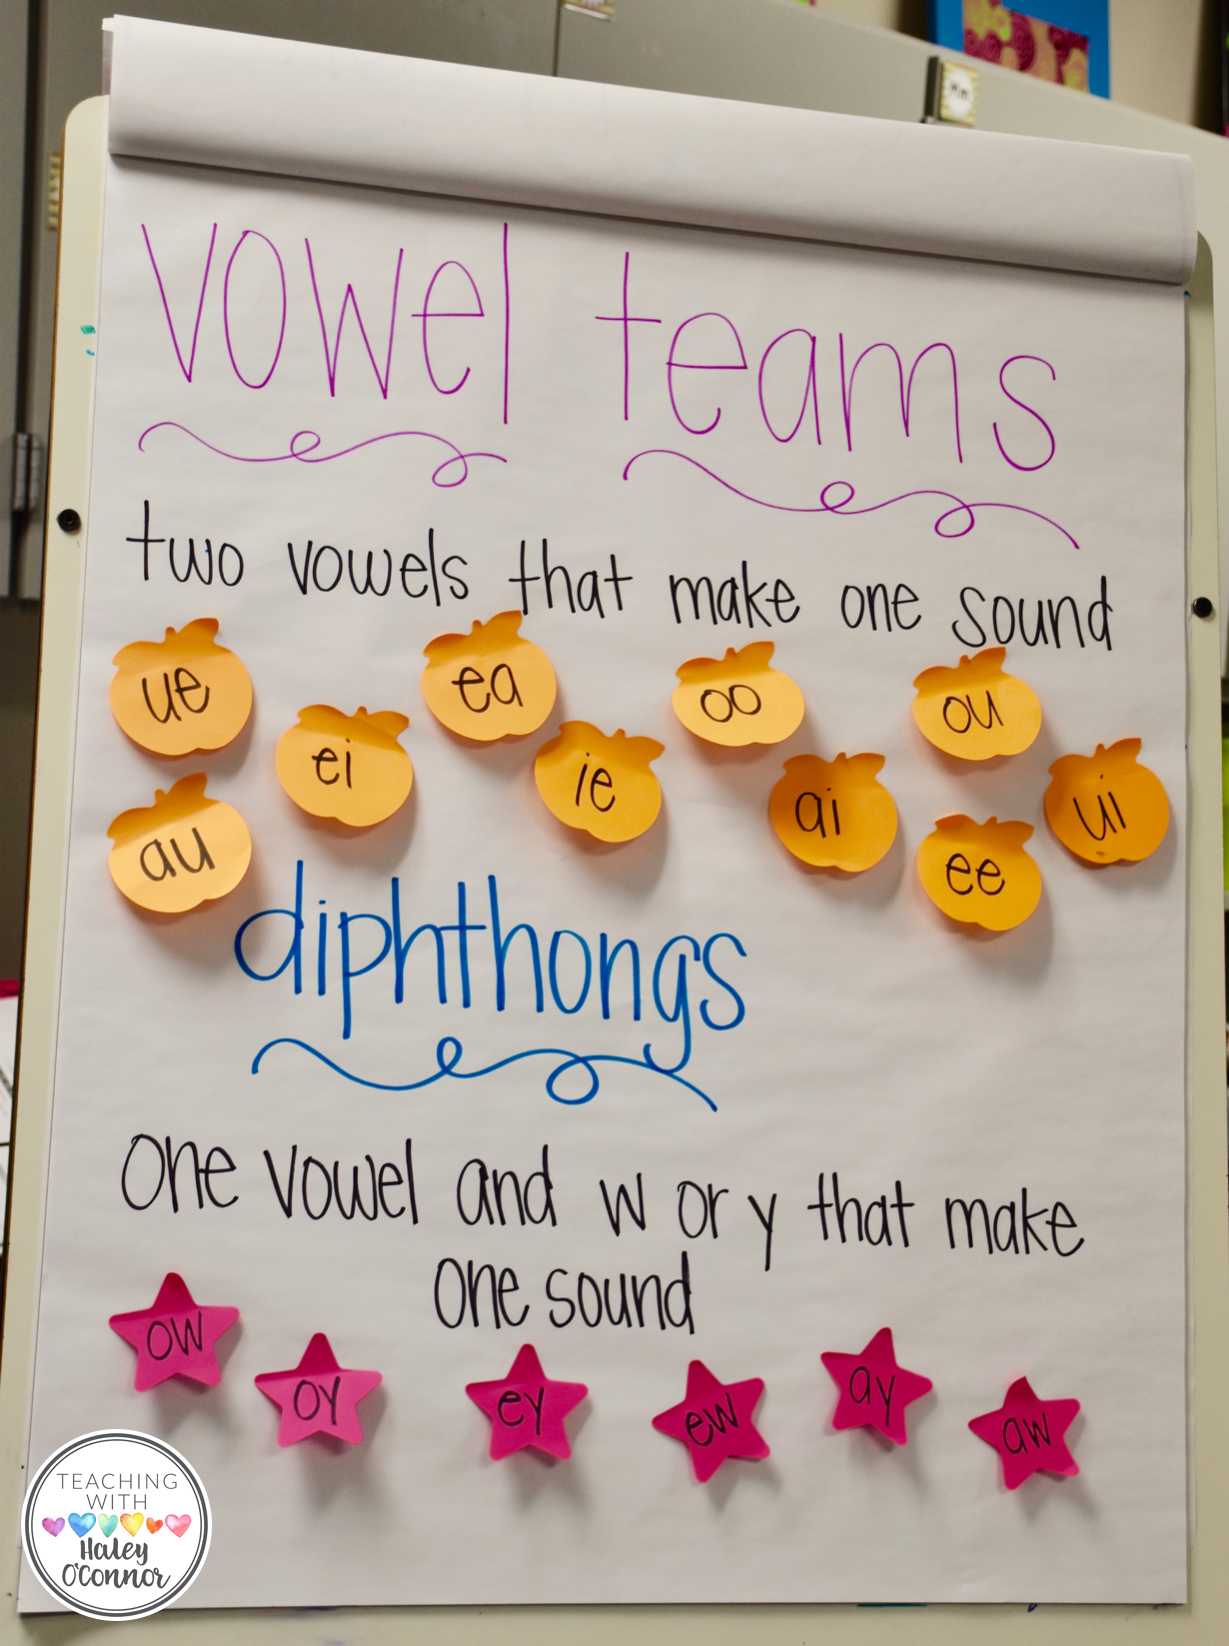 vowel teams
two vowels that make one sound
ue ea oo ou
ei ie ai ui
au ee
diphthongs
one vowel and w or y that make
one sound
ow oy ey ew ay aw
TEACHING
WITH
Haley
O'Connor